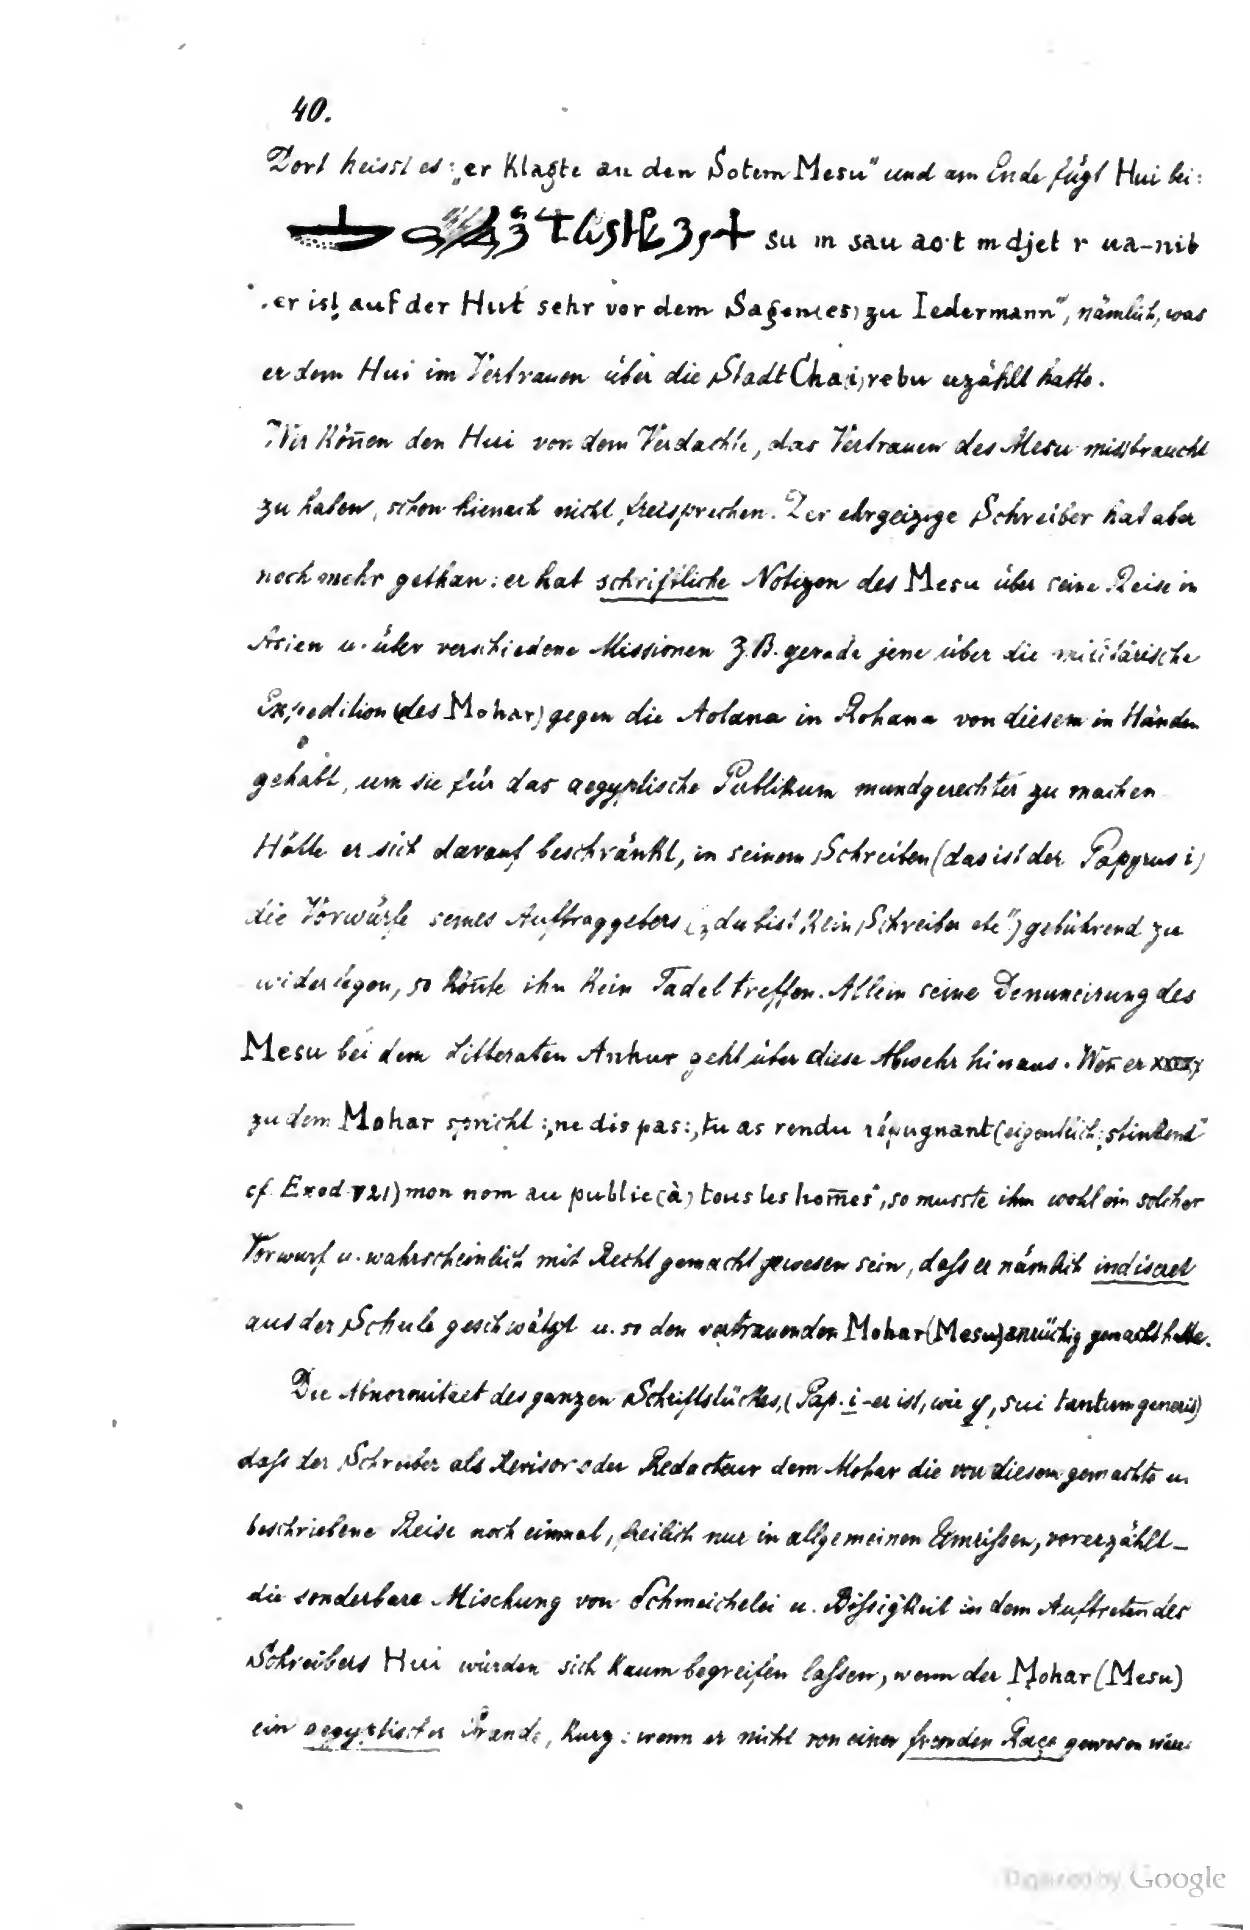 40.
Dort heisst es: „er Klagte an den Sotem Mesu" und am Ende fügt Hui bei:
su m sau ao·t m djet r ua-nib
„er ist auf der Hut sehr vor dem Sagen (es) zu Iedermann", nämlich, was
er dem Hui im Vertrauen über die Stadt Cha(i)rebu erzählt hatte.
Wir Kön̄en den Hui von dem Verdachte, das Vertrauen des Mesu missbraucht
zu haben, schon hienach nicht freisprechen. Der ehrgeizige Schreiber hat aber
noch mehr gethan: er hat schriftliche Notizen des Mesu über seine Reise in
Asien u. über verschiedene Missionen z.B. gerade jene über die militärische
Expedition (des Mohar) gegen die Aolana in Rohana von diesem in Händen
gehabt, um sie für das aegyptische Publikum mundgerechter zu machen
Hätte er sich darauf beschränkt, in seinem Schreiben (das ist der Papyrus i)
die Vorwürfe seines Auftraggebers („du bist Kein Schreiber etc") gebührend zu
widerlegen, so Kön̄te ihn Kein Tadel treffen. Allein seine Denuncirung des
Mesu bei dem Litteraten Anhur geht über diese Abwehr hinaus. Wen̄ er
zu dem Mohar spricht: „ne dis pas: „tu as rendu répugnant (eigentlich „stinkend"
cf Exod V 21) mon nom au public (à) tous les hom̄es", so musste ihm wohl ein solcher
Vorwurf u. wahrscheinlich mit Recht gemacht gewesen sein, daſs er nämlich indiscret
aus der Schule geschwätzt u. so den vertrauenden Mohar (Mesu) anrüchig gemacht hatte.
Die Abnormitaet des ganzen Schriftstückes, (Pap. i - er ist, wie y, sui tantum generis)
daſs der Schreiber als Revisor oder Redacteur dem Mohar die von diesem gemachte u
beschriebene Reise noch einmal, freilich nur in allgemeinen Umriſsen, vorerzählt –
die sonderbare Mischung von Schmeichelei u. Biſsigkeit in dem Auftreten des
Schreibers Hui würden sich Kaum begreifen laſsen, wenn der Mohar (Mesu)
ein aegyptischer Grande, Kurz: wenn er nicht von einer fremden Raçe gewesen wäre
Digitized by Google